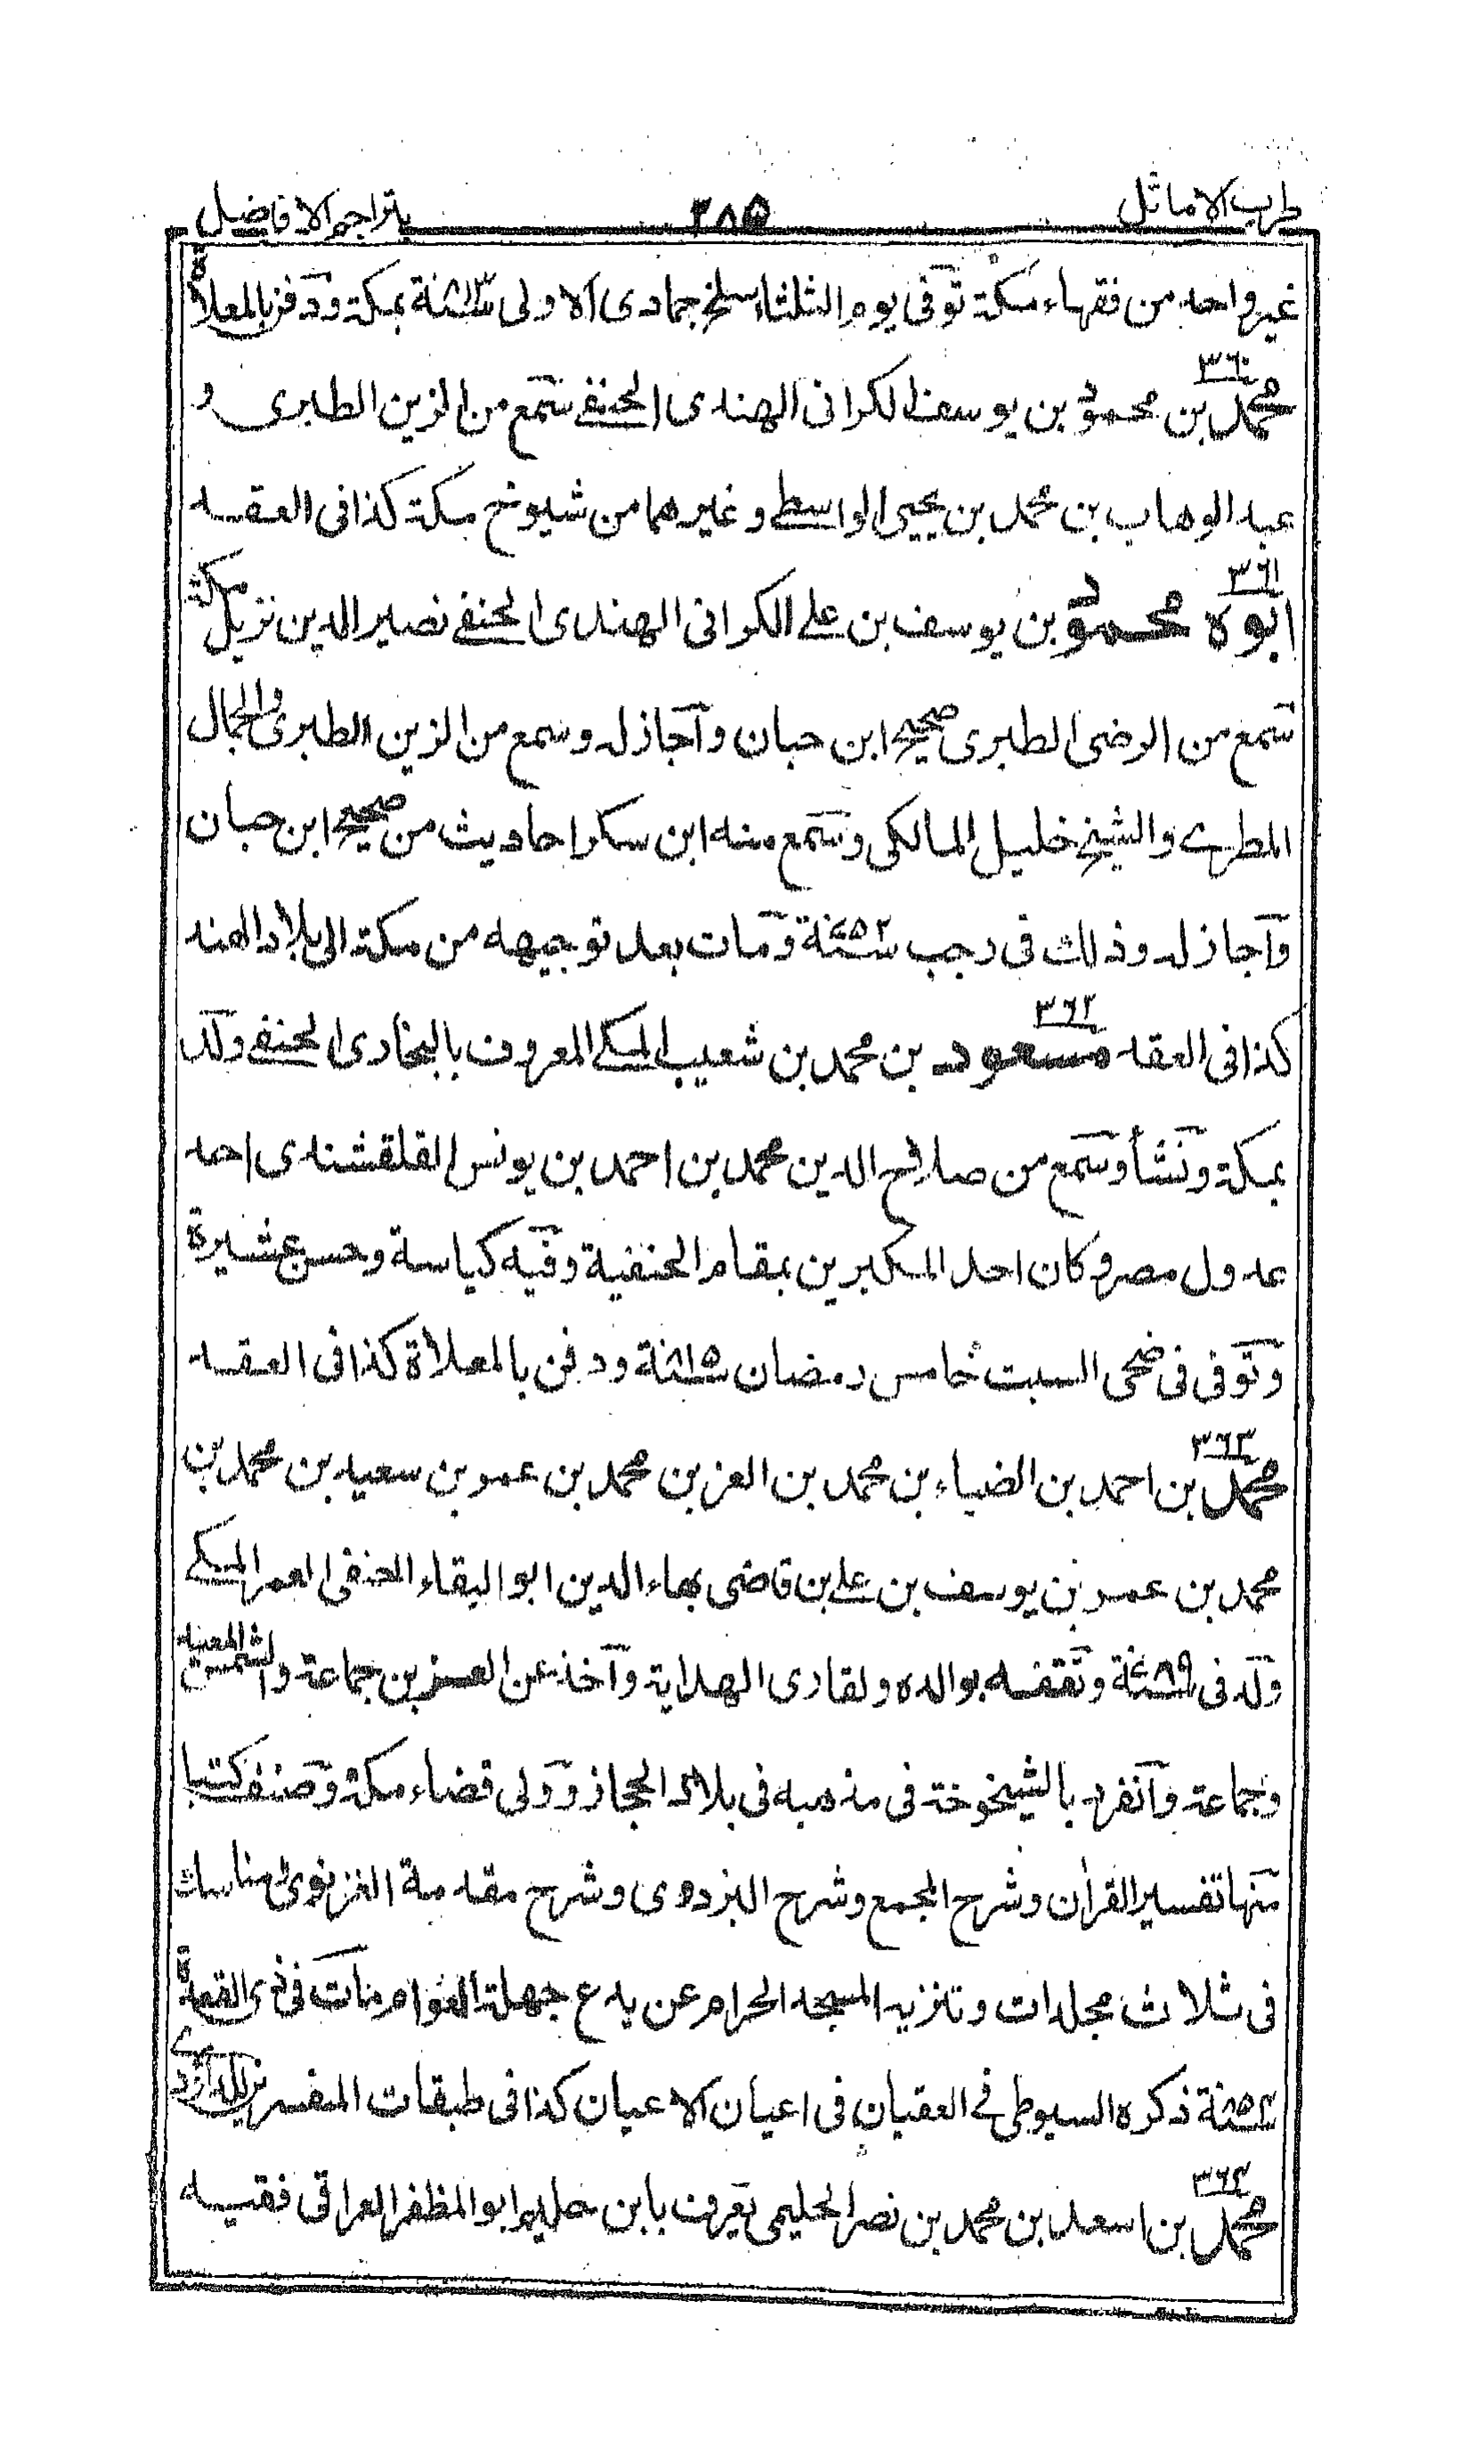 طرب الاماثل ٢٨٥ بتراجم الافاضل
غير واحد من فقهاء مكة توفى يوم الثلثاء سلخ جمادى الاولى سنة ٨١٣ بمكة ودفن بالمعلاة
٣٦٠
محمد بن محمود بن يوسف الكرانى الهندى الحنفى سمع من الزين الطبرى و
عبد الوهاب بن محمد بن يحيى الواسطى وغيرهما من شيوخ مكة كذا فى العقد
٣٦١
ابوه محمود بن يوسف بن على الكرانى الهندى الحنفى نصير الدين نزيل مكة
سمع من الرضى الطبرى صحيح ابن حبان واجاز له وسمع من الزين الطبرى والجمال
المطرى والشيخ خليل المالكى وسمع منه ابن سكر احاديث من صحيح ابن حبان
واجاز له وذلك فى رجب سنة ٧٥٢ ومات بعد توجيهه من مكة الى بلاد الهند
٣٦٢
كذا فى العقد مسعود بن محمد بن شعيب المكى المعروف بالبخارى الحنفى ولد
بمكة ونشأ وسمع من صلاح الدين محمد بن احمد بن يونس القلقشندى احد
عدول مصر وكان احد المكبرين بمقام الحنفية وفيه كياسة وحسن عشيرة
وتوفى فى ضحى السبت خامس رمضان سنة ٨١٥ ودفن بالمعلاة كذا فى العقد
٣٦٣
محمد بن احمد بن الضياء بن محمد بن العز بن محمد بن عمر بن سعيد بن محمد بن
محمد بن عمر بن يوسف بن على بن قاضى بهاء الدين ابو البقاء الحنفى العمر المكى
ولد فى سنة ٧٨٩ وتفقه بوالده ولقارى الهداية واخذ عن العز بن جماعة والشمس المعيد
وجماعة وانفرد بالشيخوخة فى مذهبه فى بلاد الحجاز وولى قضاء مكة وصنف كتبا
منها تفسير القرأن وشرح المجمع وشرح البزدوى وشرح مقدمة الغزنوى ومناسك
فى ثلاث مجلدات وتنزيه المسجد الحرام عن بدع جهلة العوام مات فى ذى القعدة
سنة ٨٥٤ ذكره السيوطى فى العقيان فى اعيان الاعيان كذا فى طبقات المفسرين للداؤدى
٣٦٤
محمد بن اسعد بن محمد بن نصر الحليمى يعرف بابن حليم ابو المظفر العراقى فقيه